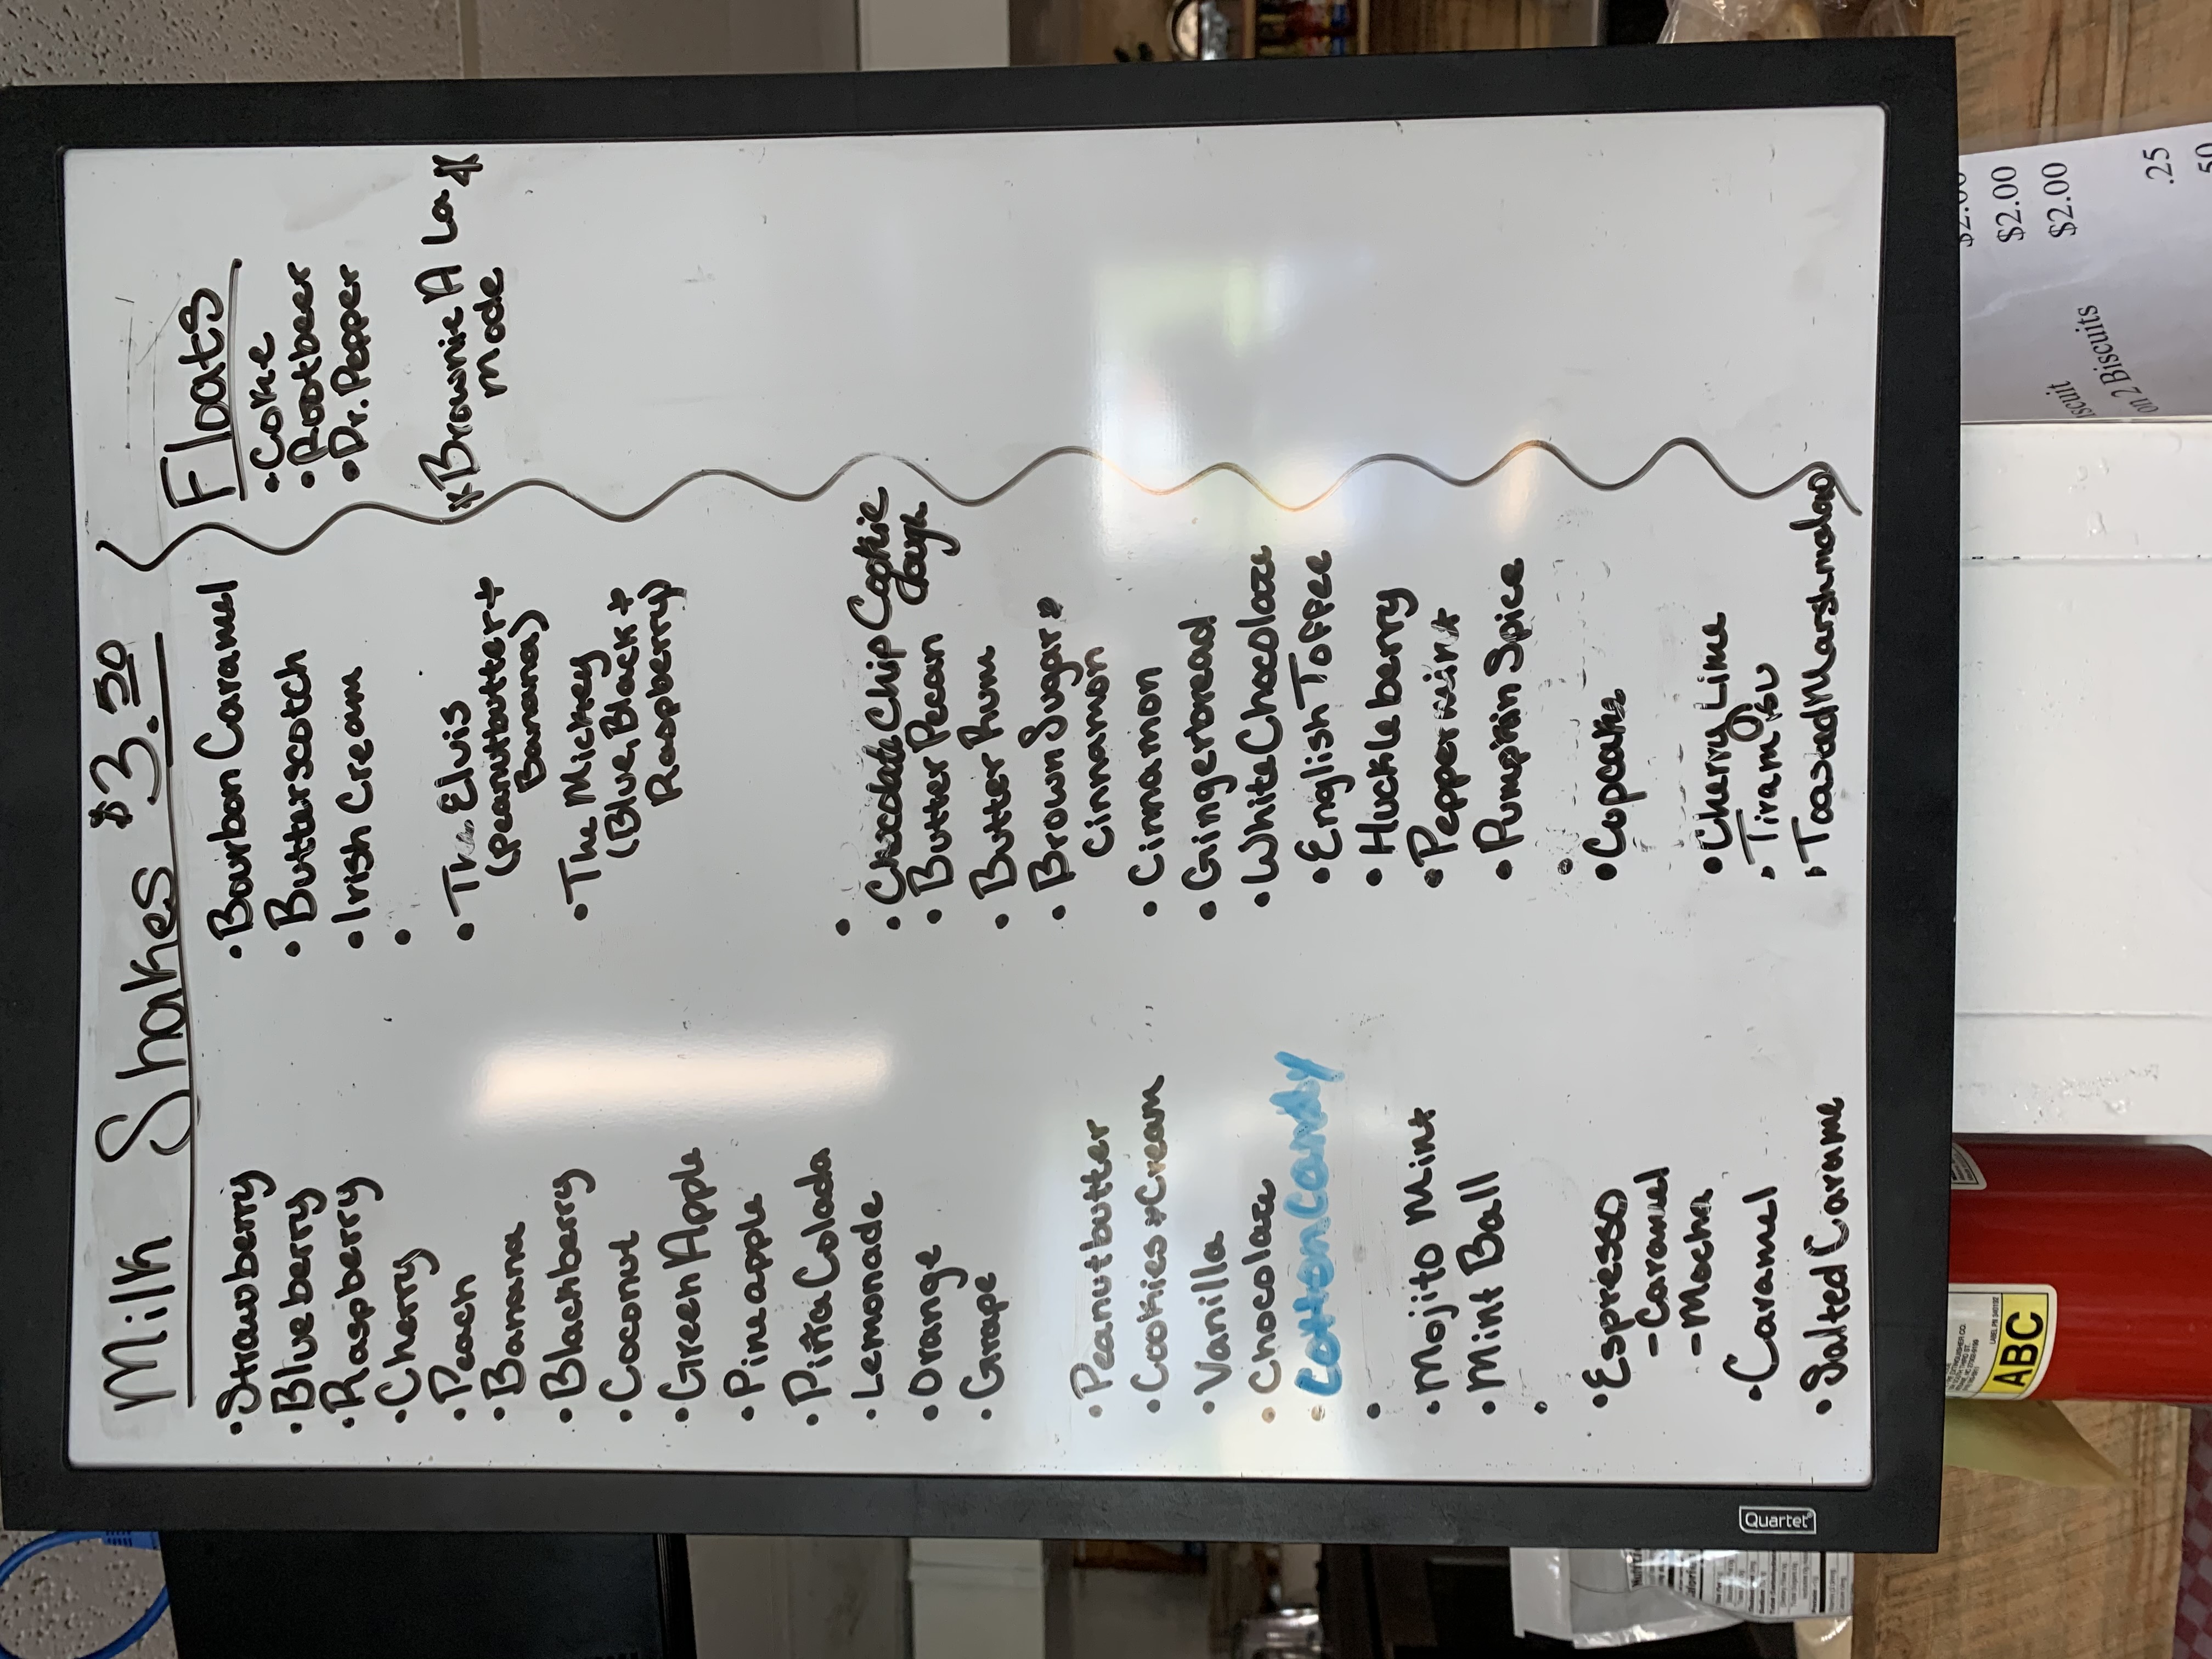 Milk Shakes $3.50
• Strawberry
• Blueberry
• Raspberry
• Cherry
• Peach
• Banana
• Blackberry
• Coconut
• Green Apple
• Pineapple
• Piña Colada
• Lemonade
• Orange
• Grape
• Peanutbutter
• Cookies + Cream
• Vanilla
• Chocolate
• Cotton Candy
•
• Mojito Mint
• Mint Ball
•
• Espresso
- Caramel
- Mocha
• Caramel
• Salted Carame
• Bourbon Caramel
• Butterscotch
• Irish Cream
•
• The Elvis
(Peanutbutter +
Banana)
• The Mickey
(Blue, Black +
Raspberry)
•
• Chocolate Chip Cookie
dough
• Butter Pecan
• Butter Rum
• Brown Sugar +
Cinnamon
• Cinnamon
• Gingerbread
• White Chocolate
• English Toffee
• Huckleberry
• Peppermint
• Pumpkin Spice
•
• Cupcake
• Cherry Lime
• Tiramisu
• Toasted Marshmalow
Floats
• Coke
• Rootbeer
• Dr. Pepper
* Brownie A La *
Mode
Quartet
LABEL PN
ABC
$2.00
$2.00
iscuit $2.00
on 2 Biscuits
.25
.50